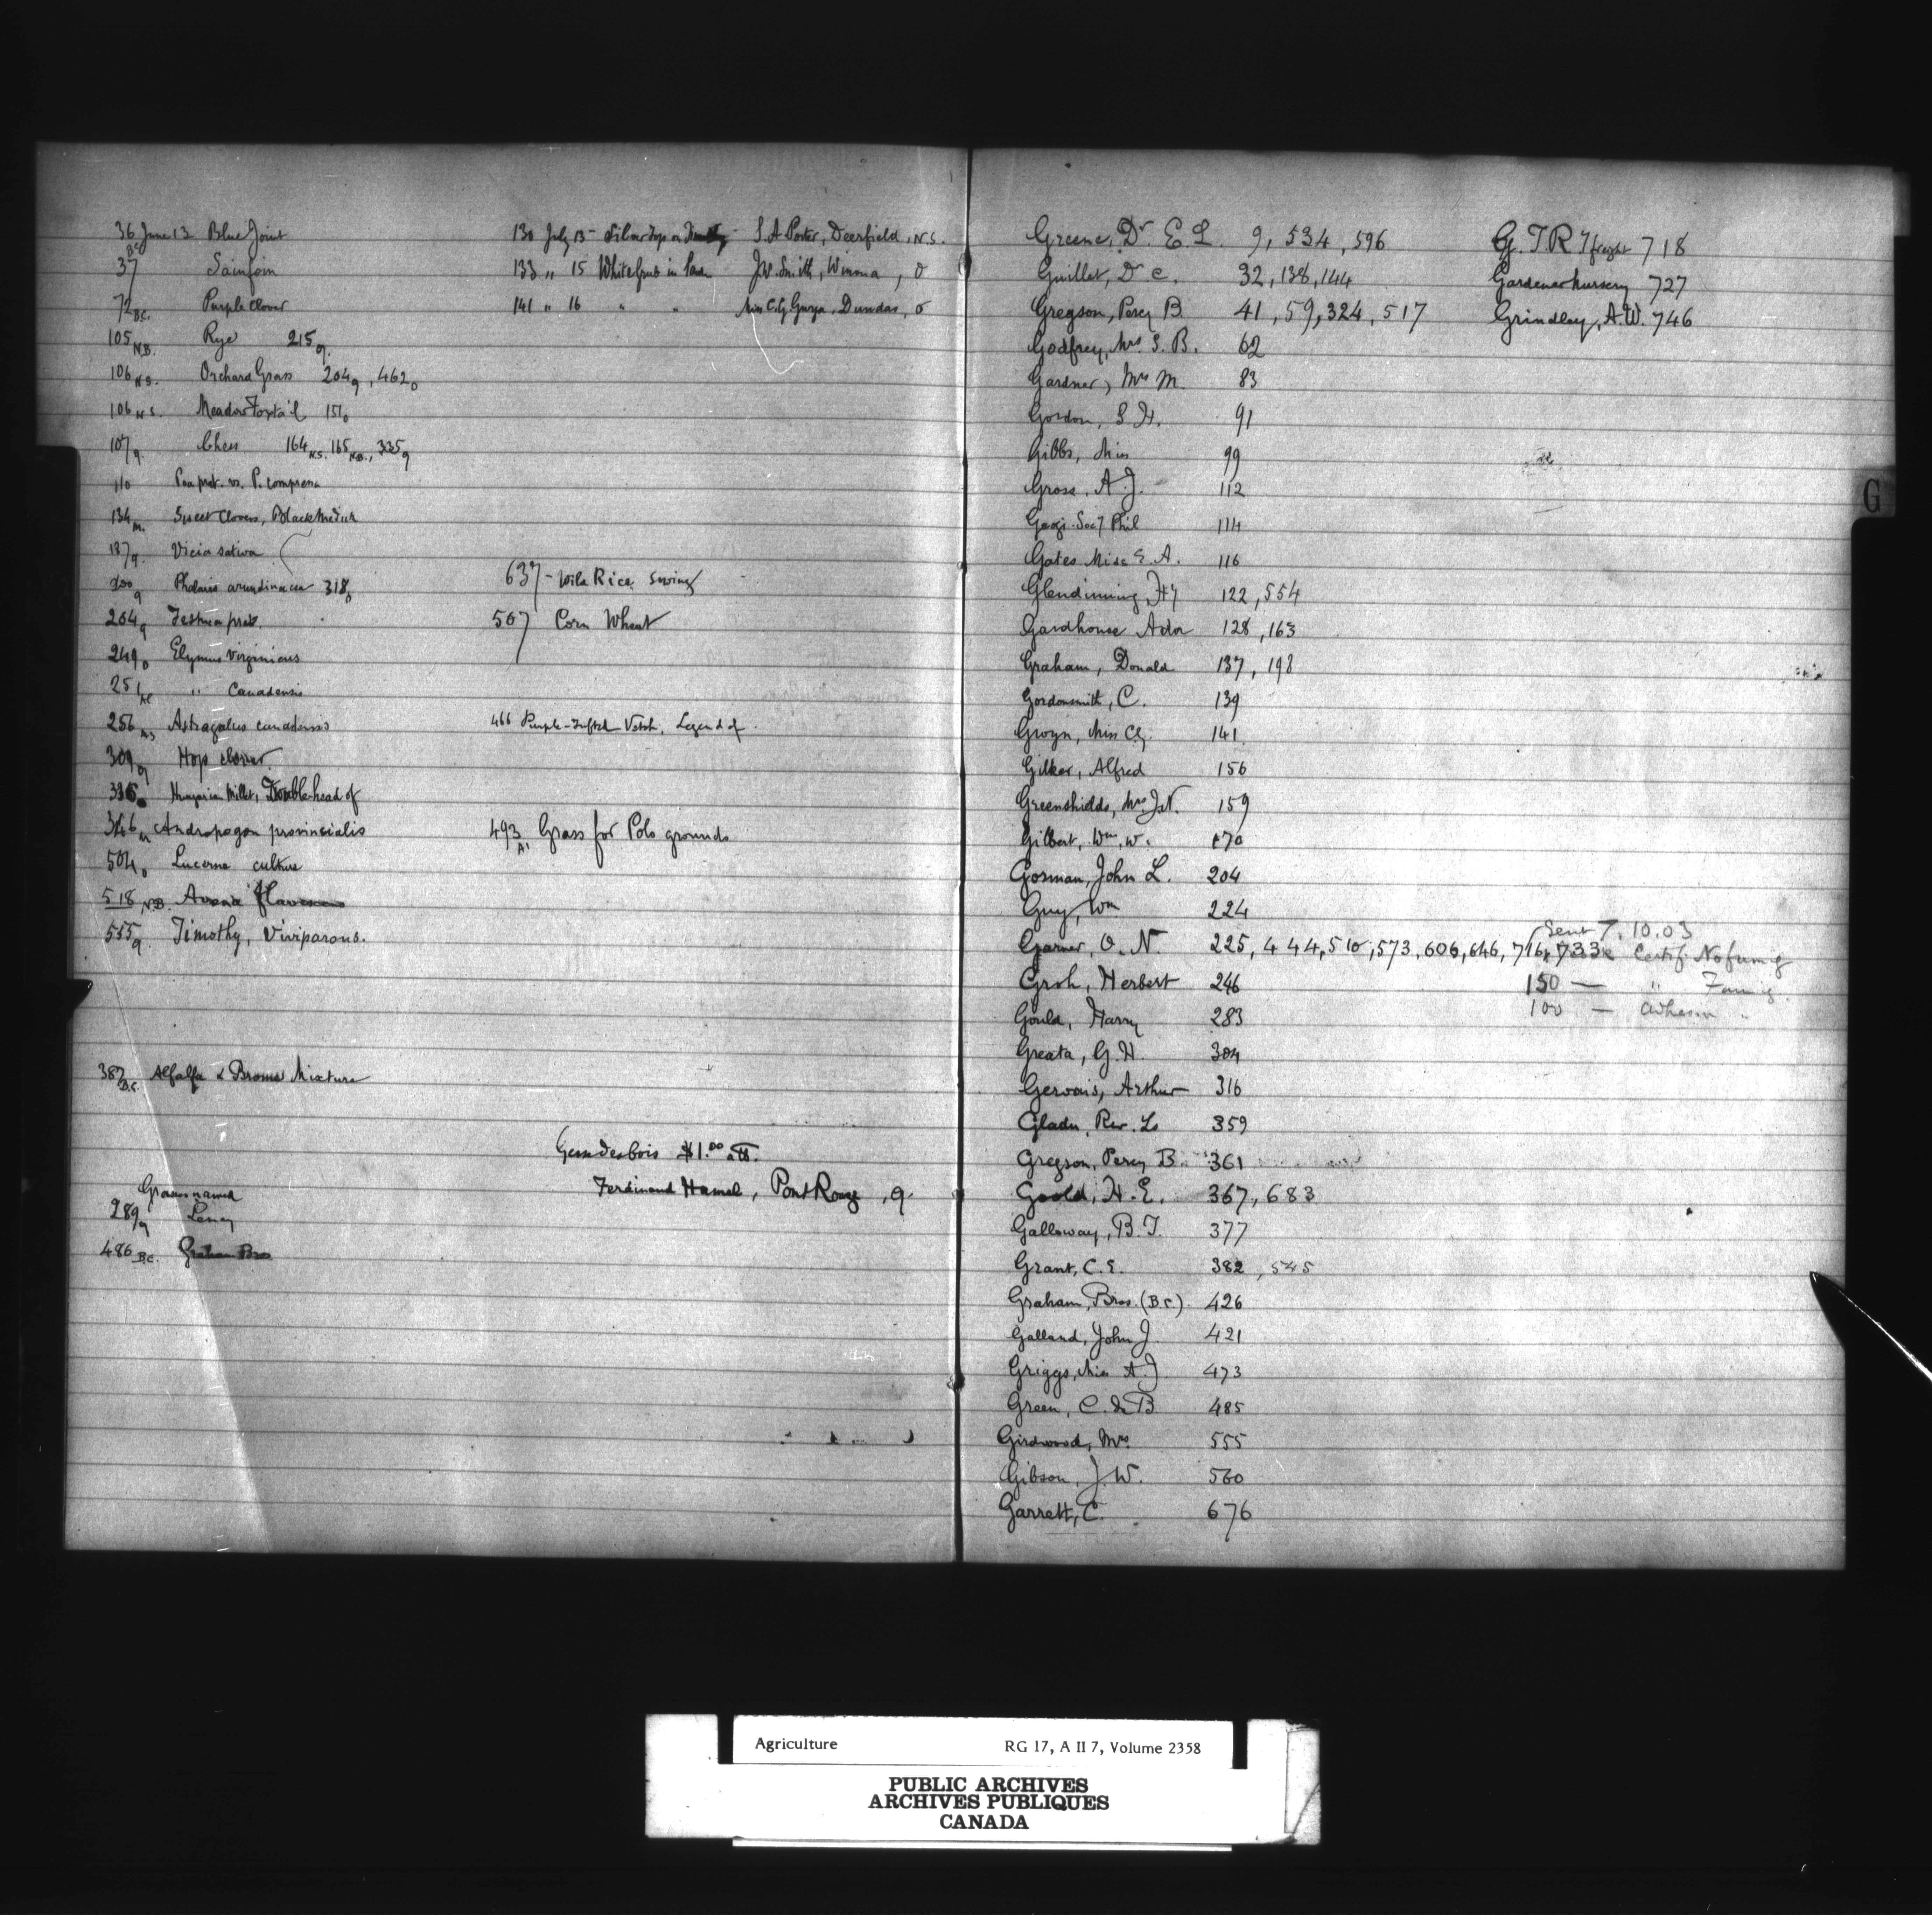 36 June 13 Blue Joint
BC
37 Sainfoin
72 B.C. Purple Clover
105 N.B. Rye 215 q
106 N.S. Orchard Grass 204 q, 462 o
106 N.S. Meadow Foxtail 151 o
107 q Chess 164 N.S. 165 N.B., 335 q
110 Poa prat. vs. P. compressa
134 m. Sweet Clovers, Black Medick
187 q. Vicia sativa
200 q Phalaris arundinacea 318 o
204 q Festuca prat.
249 o Elymus virginicus
251 " Canadensis
256 Astragalus canadensis
309 q Hop clover
336 Hungarian Millet, Double-head of
346 Andropogon provincialis
504 o Lucerne culture
518 N.B. Avena flavescens
555 q. Timothy, Viviparous.
387 B.C. Alfalfa & Brome Mixture
Grasses named
289 q
486 B.C. Graham Bros
130 July 13 - Silver top on S. A Porter, Deerfield, N.S.
133 " 15 White Grub in J.W. Smith, Winona, O
141 " 16 " " Miss C.G. Gwyn, Dundas, O
637 - Wild Rice Sowing
507 Corn Wheat
466 Purple-Tufted Vetch, Legend of
493 A. Grass for Polo grounds
$1.00 a lb.
Ferdinand Hamel, Pont Rouge, q.
Greene, Dr. E. L. 9, 534, 596
Guillet, Dr C. 32, 138, 144
Gregson, Percy B. 41, 59, 324, 517
Godfrey, Mrs. S. B. 62
Gardner, Mrs M. 83
Gordon, S. H. 91
Gibbs, Miss 99
Gross, A. J. 112
Geog. Socy Phil 114
Gates Miss E A. 116
Glendinning, Hy 122, 554
Gardhouse 128, 163
Graham, Donald 137, 198
Gordonsmith, C. 139
Gwyn, Miss C.G. 141
Gilker, Alfred 156
Greenshields, Mrs J.N. 159
Gilbert, Wm. W. 170
Gorman, John L. 204
Guy, Wm 224
Garner, O. N. 225, 444, 510, 573, 606, 646, 716, 733
Groh, Herbert 246
Gould, Harry 283
Greata, G. H. 304
Gervais, Arthur 316
Gladu, Rev. L. 359
Gregson, Percy B. 361
Goold, H. E. 367, 683
Galloway, B. T. 377
Grant, C. E. 382, 545
Graham, Bros. (B.C.) 426
Galland, John J 421
Griggs, Miss A. J 473
Green, C. de B 485
Girdwood, Mrs. 555
Gibson, J. W. 560
Garrett, C. 676
G. T R Y freight 718
Gardener Nursery 727
Grindley, A.W. 746
Sent 7.10.03
Certif. No fumig
150 — " Fumig.
100 — "
G
Agriculture RG 17, A II 7, Volume 2358
PUBLIC ARCHIVES
ARCHIVES PUBLIQUES
CANADA